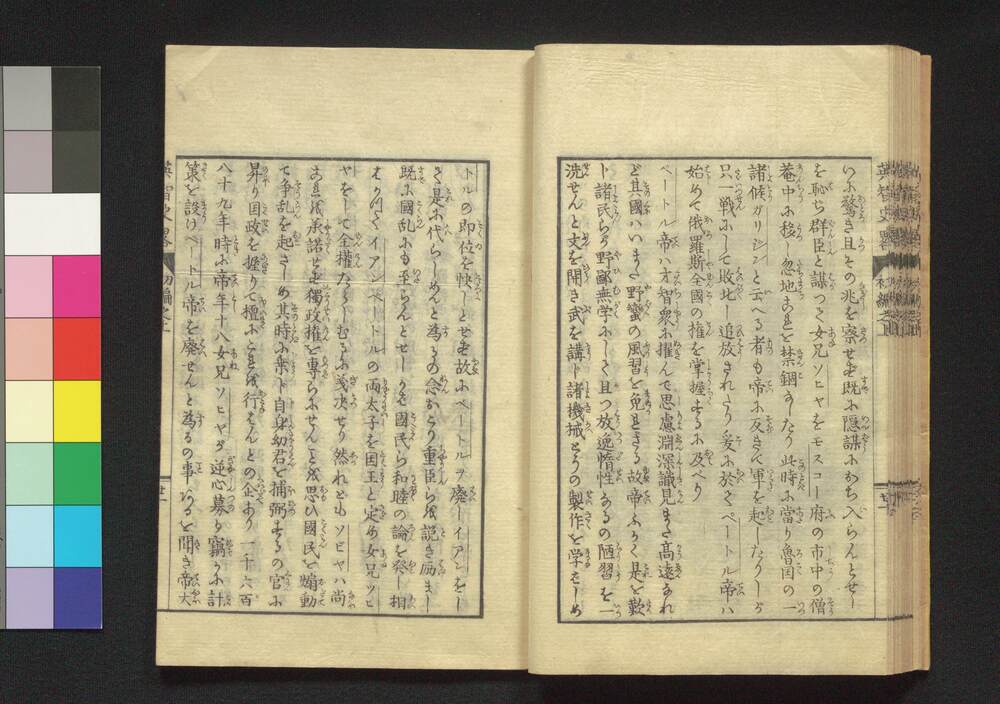 いに驚き且その兆を察せも既に隠謀におち入らんとせし
を恥ち群臣と謀つて女兄ソヒヤをモスコー府の市中の僧
菴中に移し忽地これを禁錮なしたり此時に當り魯国の一
諸候ガリシンと云へる者も帝に反きて軍を起したりしが
只一戦にして敗北し追放されたり爰に於てペートル帝ハ
始めて俄羅斯全國の権を掌握するに及べり
ペートル帝ハ才智衆に擢んで思慮淵深識見また高遠なれ
ど其國ハいまだ野蠻の風習を免れざる故帝ふかく是を歎
ト諸民らが野鄙無学にして且つ放逸惰性なるの陋習を一
洗せんと文を開き武を講ト諸機械とうの製作を学をしめ
英智史畧 初編之上
廿一
トルの即位を快しとせも故にペートルヲ廃しイアンをし
て是に代らしめんと為るの念おこり重臣らを説き励まし
既に國乱にも至らんとせしかも國民ら和睦の論を發し相
はかつてイアンペートルの両太子を国王と定め女兄ソヒ
ヤをして全權たらしむるに議决せり然れとも ソヒヤハ尚
これを承諾せも獨政権を専らにせんことを思ひ國民を煽動
て争乱を起さしめ其時に乗ト自身幼君を補弼するの官に
昇り国政を握りて檀にこれを行はんとの企あり 一千六百
八十九年時に帝年十八女兄ソヒヤが逆心募り竊かに計
策を設けペートル帝を廃せんと為るの事あるを聞き帝大